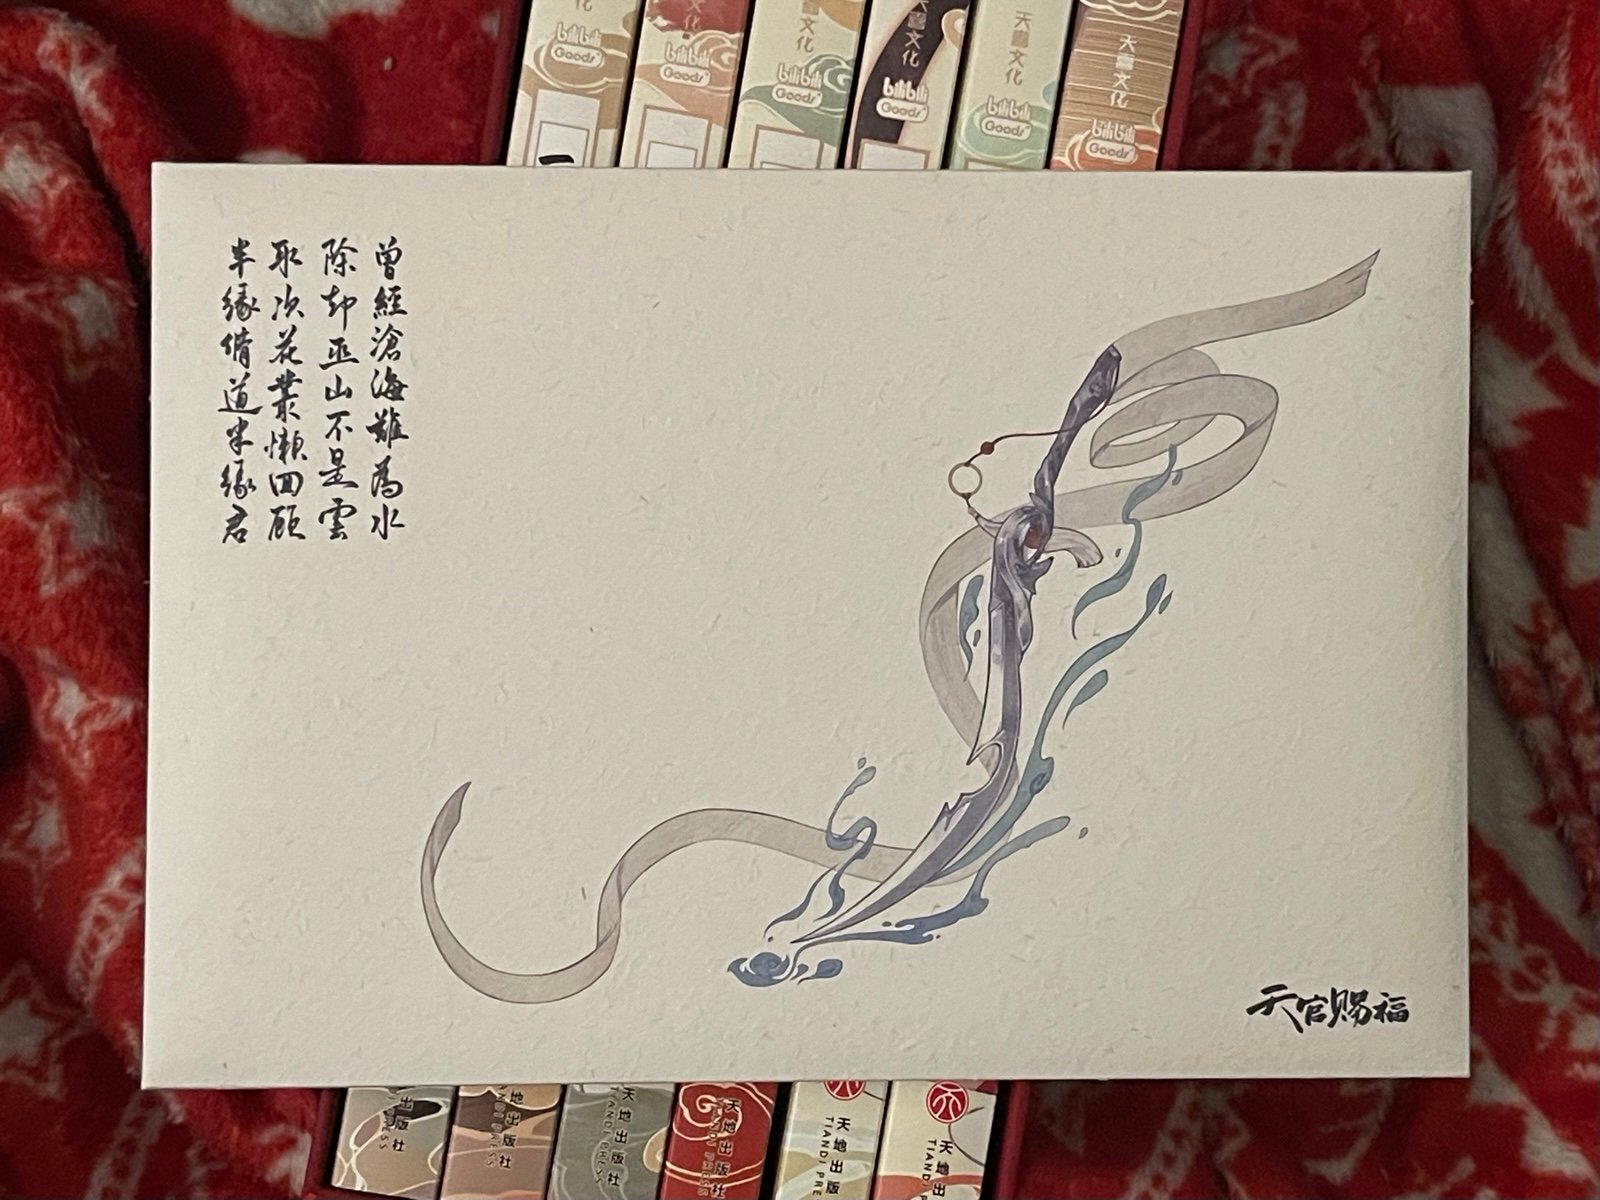 化
bilibili
Goods
文化
bilibili
Goods
文化
bilibili
Goods
喜文化
bilibili
Goods
天喜文化
bilibili
Goods
天喜文化
bilibili
Goods
曾經滄海難為水
除却巫山不是雲
取次花叢懶回顧
半緣脩道半緣君
天官赐福
出版社
PRESS
地出版社
PRESS
天地出版社
TIANDI PRESS
天地出版社
TIANDI PRESS
天地出版
TIANDI PRE
天地出
TIANDI